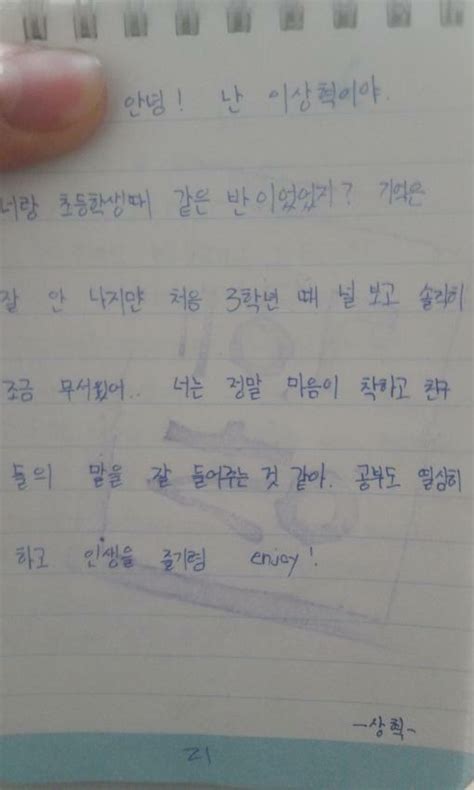 안녕! 난 이상혁이야.
너랑 초등학생때 같은 반이었었지? 기억은
잘 안 나지만 처음 3학년 때 널 보고 솔직히
조금 무서웠어.. 너는 정말 마음이 착하고 친구
들의 말을 잘 들어주는 것 같아. 공부도 열심히
하고 인생을 즐기렴 enjoy!
-상혁-
21